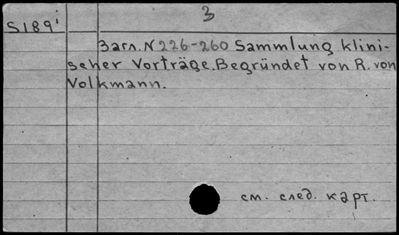 3
S189ⁱ
Загл. N 226-260 Sammlung klini-
scher Vorträge. Begründet von R. von
Volkmann.
см. след. карт.